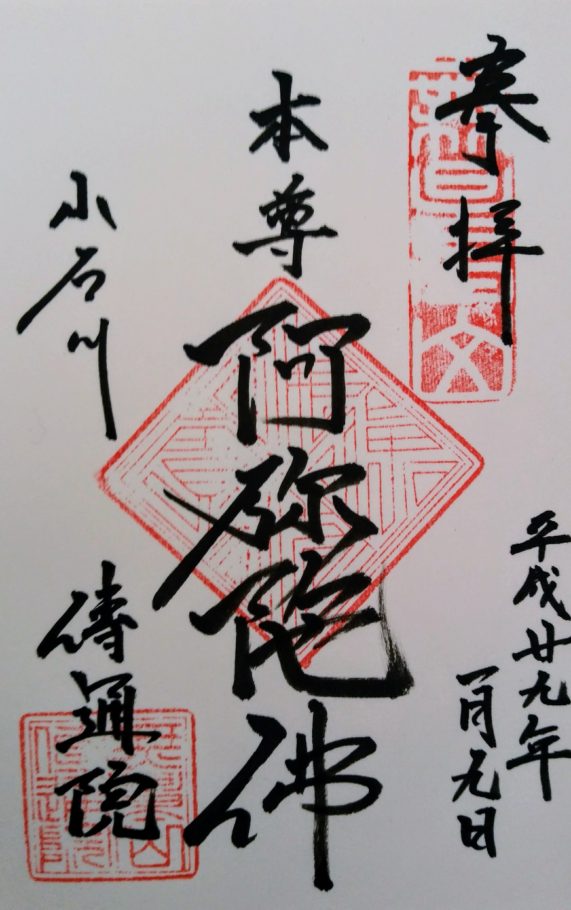 奉拝
平成廿九年
一月九日
本尊
阿弥陀佛
小石川
傳通院